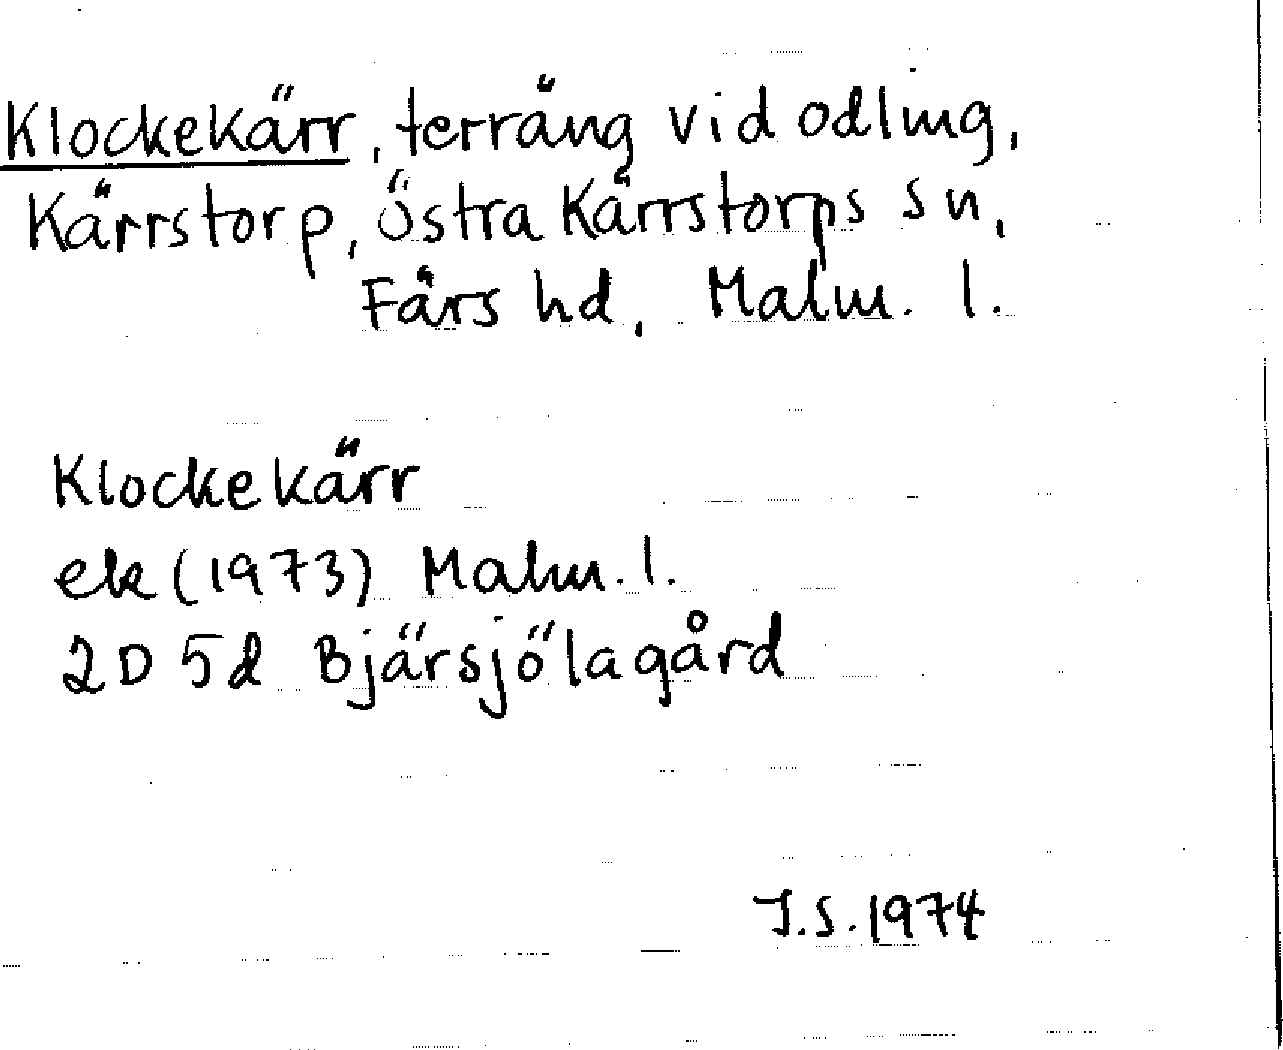 Klockekärr, terräng vid odling,
Kärrstorp, Östra Kärrstorps sn,
Färs hd, Malm. l.
Klockekärr
ek (1973) Malm. l.
2D 5d Bjärsjölagård
J.S. 1974